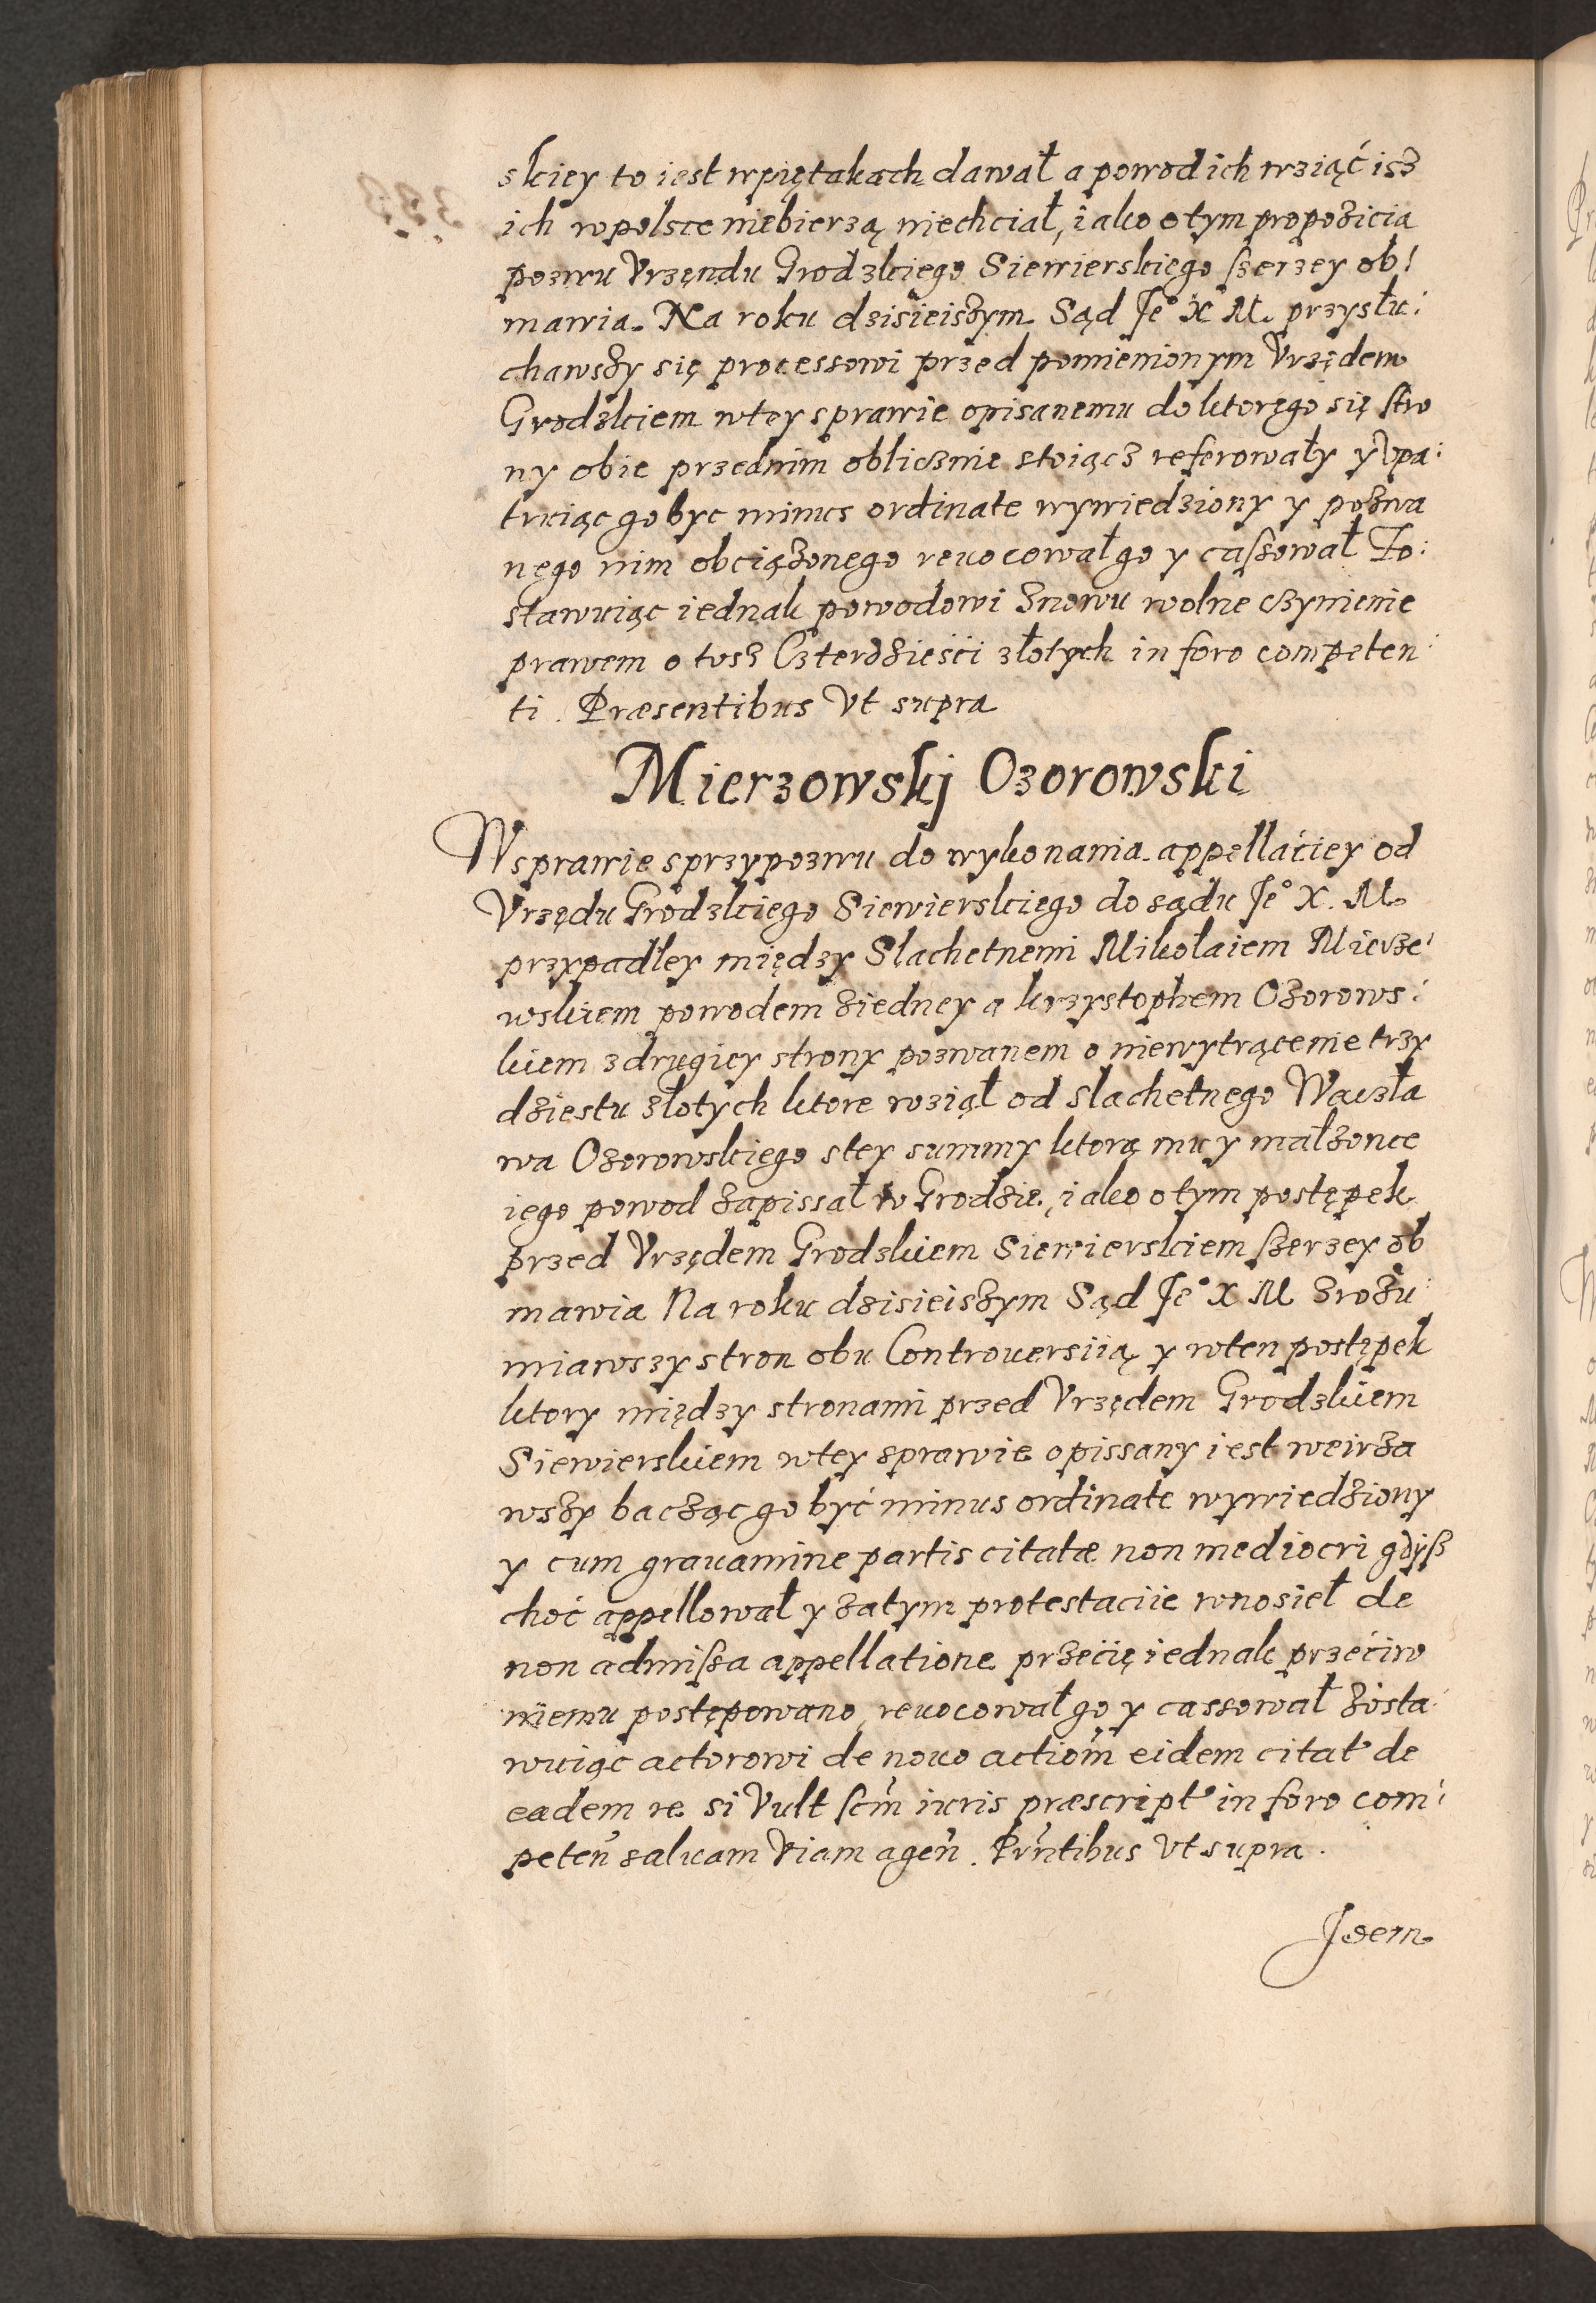 skiey to iest wpiętakach dawał a powod ich wziąć isz
ich wpolsce niebierzą niechciał, iako otym propozicia
pozwu Vrzęndu Grodzkiego Siewierskiego szerzey ob:
mawia. Na roku dzisieiszym Sąd Je° X M. przysłu:
chawszy się processowi przed pomienionym Vrzędem
Grodzkiem wtey sprawie opisanemu do ktoręgo się stro
ny obie przednim oblicznie stoiącz referowały y vpa:
truiąc go byc minus ordinate wywiedziony y pozwa
nęgo nim obciązonego reuocował go y casszował Zo:
stawuiąc iednak powodowi znowu wolne czynienie
prawem o tosz Czterdzieści złotych in foro competen:
ti. Præsentibus Vt supra
Mierzowskj Ozorowski
Wsprawie sprzypozwu do wykonania appellaćiey od
Vrzędu Grodzkiego Siewierskiego do sądu Je° X. M.
przypadłey między Slachetnemi Mikołaiem Mierze:
wskiem powodem ziedney a krzystophem Ozorows:
kiem zdrugiey strony pozwanem o niewytrącenie trzy
dziestu złotych ktore wziął od slachetnego Waczła
wa Ozorowskiego stey summy ktorą mu y małzonce
ięgo powod zapissał w Grodzie, iako otym postępek
przed Vrzędem Grodzkiem Siewierskiem szerzey ob
mawia Na roku dzisieiszym Sąd Je° X M zrozu:
miawszy stron obu Controuersiią y wten postępek
ktory między stronami przed Vrzędem Grodzkiem
Siewierskiem wtey sprawie opissany iest weirza
wszy bacząc go być minus ordinate wywiedziony
y cum grauamine partis citatæ non mediocri gdysz
choć appellował y zatym protestaciie wnosieł de
non admissa appellatione przećię iednak przećiw
niemu postępowano, reuocował go y cassował zosta:
wuiąc actorowi de nouo action̄m eidem citat̄ de
eadem re si Vult scm̄ iuris præscript̄ in foro com:
peten̄ saluam Viam agen̄. Prn̄tibus Vt supra.
Jdem